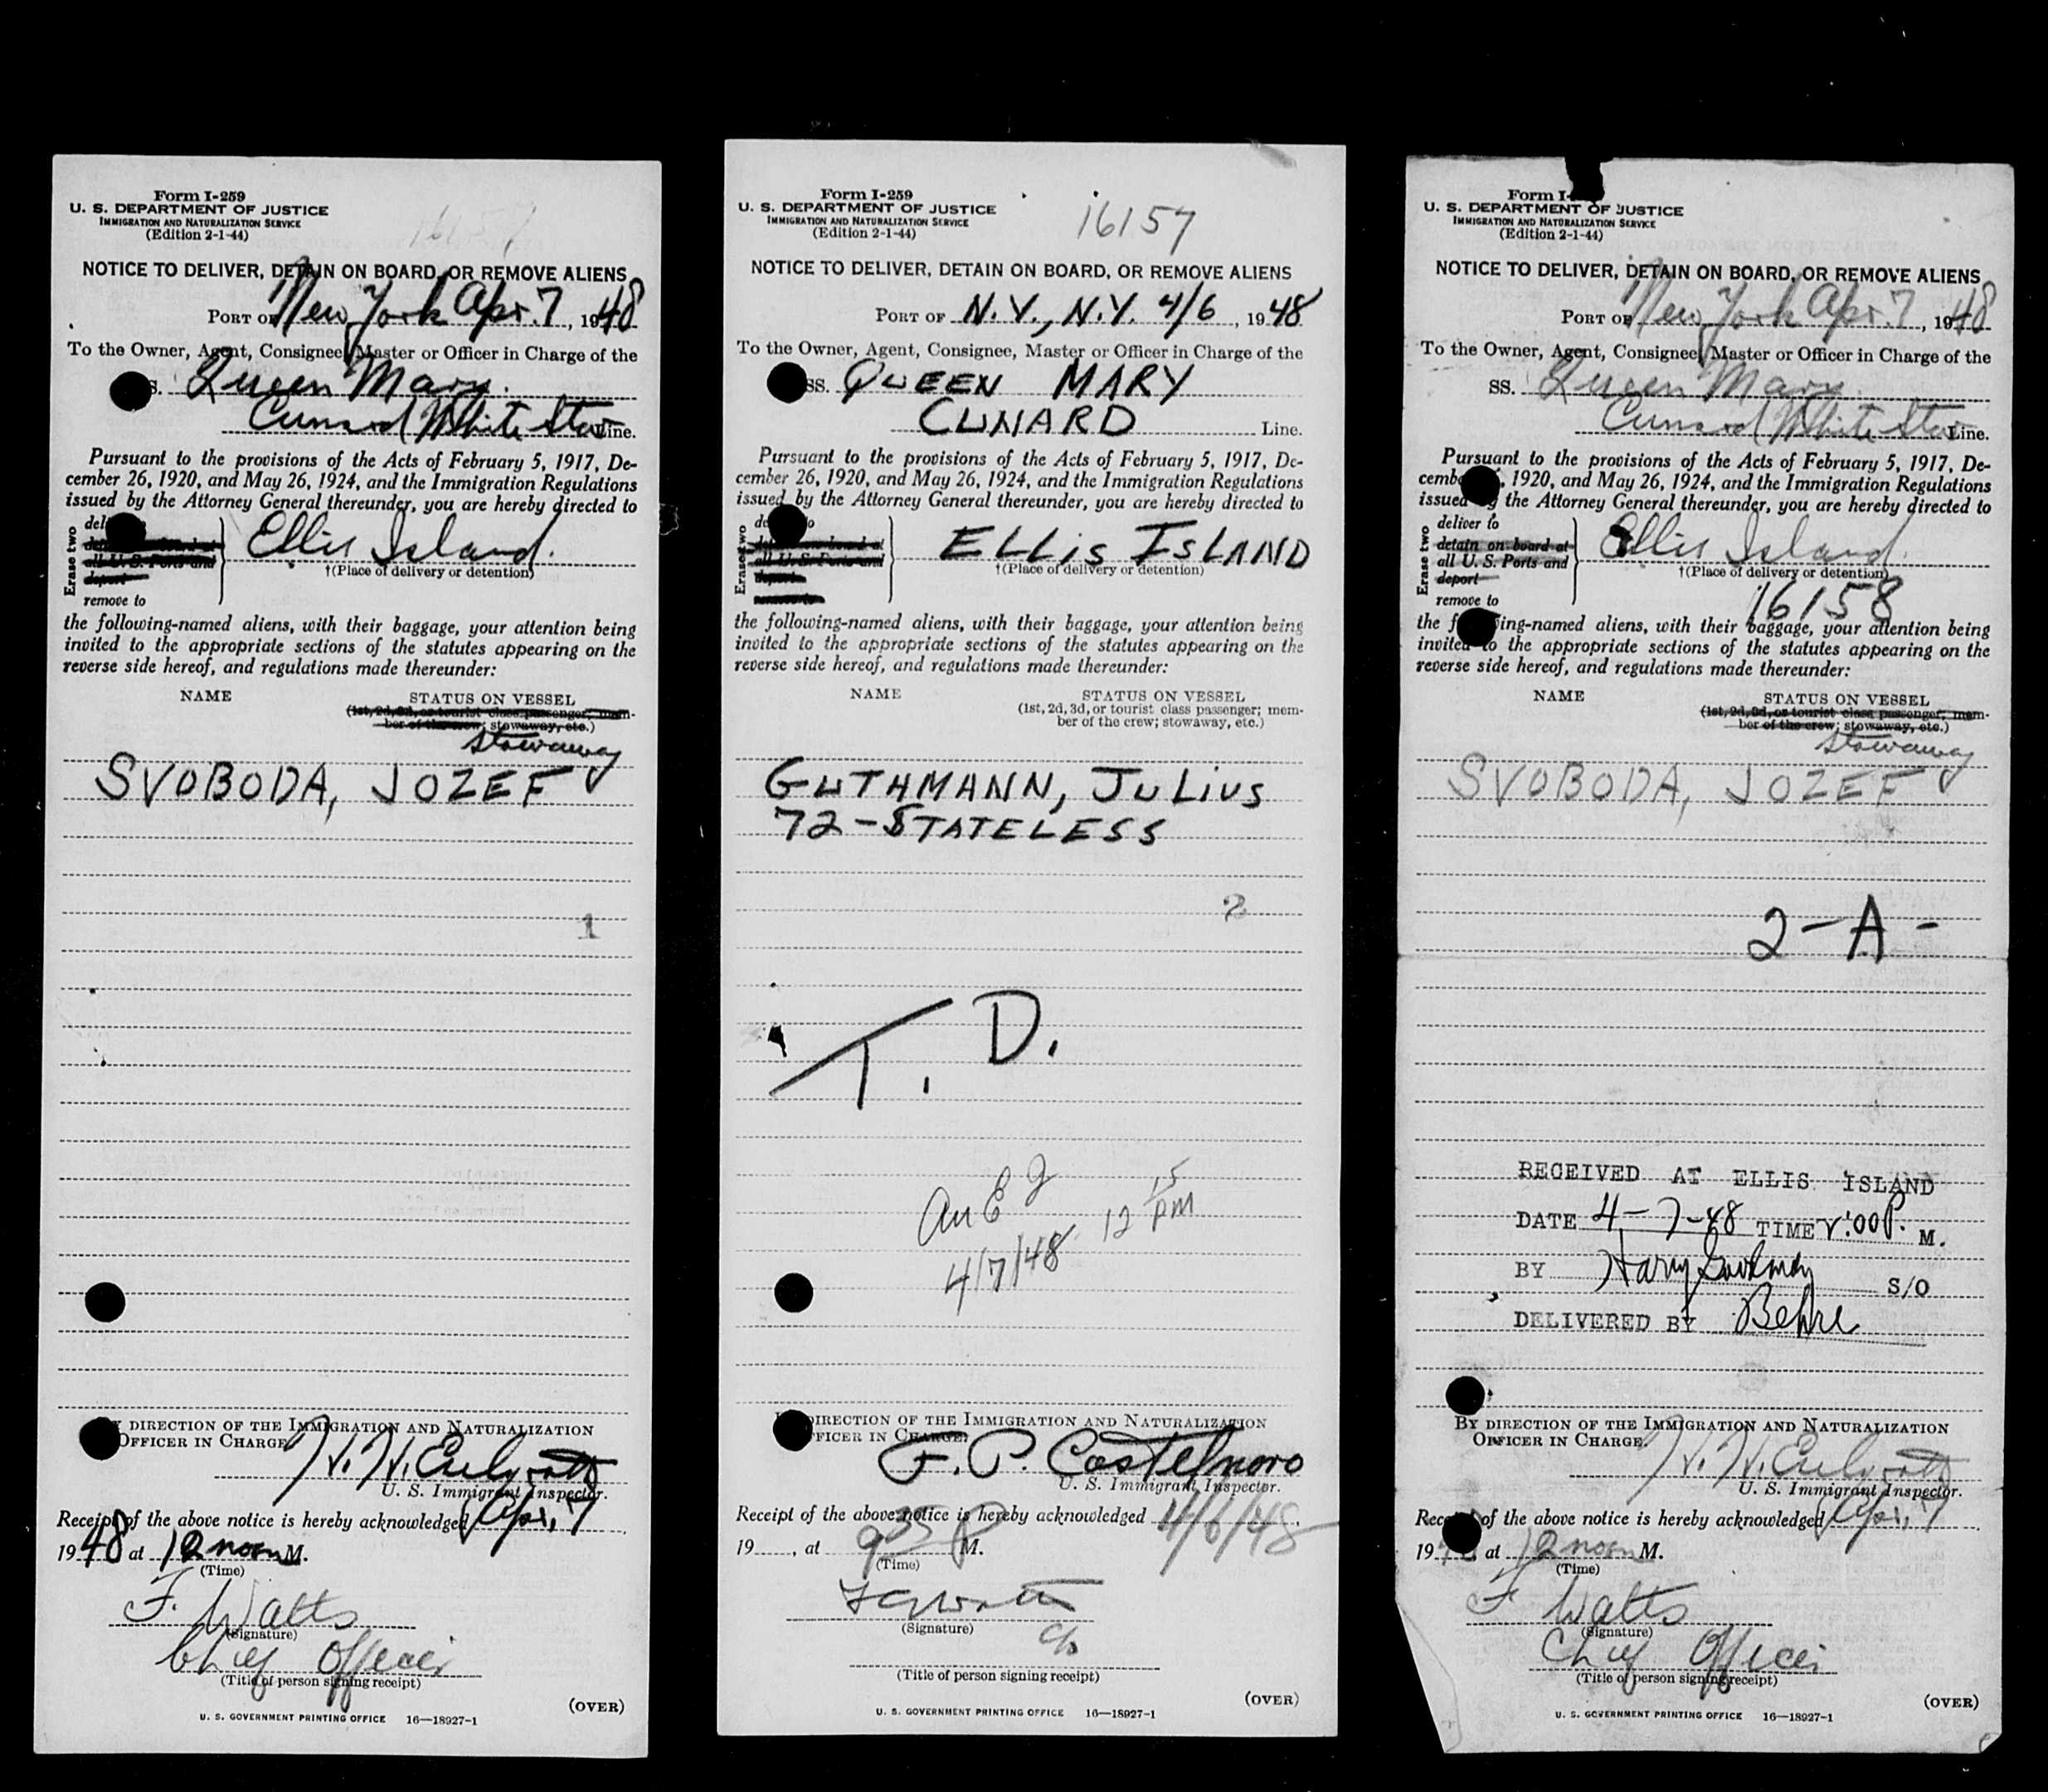 Form I-259
U. S. DEPARTMENT OF JUSTICE
IMMIGRATION AND NATURALIZATION SERVICE
(Edition 2-1-44)
16157
NOTICE TO DELIVER, DETAIN ON BOARD, OR REMOVE ALIENS
PORT OF New York Apr. 7, 1948
To the Owner, Agent, Consignee, Master or Officer in Charge of the
S. Queen Mary.
Cunard White Star Line.
Pursuant to the provisions of the Acts of February 5, 1917, De-
cember 26, 1920, and May 26, 1924, and the Immigration Regulations
issued by the Attorney General thereunder, you are hereby directed to
Erase two
all U. S. Ports and
deport
remove to
Ellis Island.
†(Place of delivery or detention)
the following-named aliens, with their baggage, your attention being
invited to the appropriate sections of the statutes appearing on the
reverse side hereof, and regulations made thereunder:
NAME STATUS ON VESSEL
(1st, 2d, 3d, or tourist class passenger; mem-
ber of the crew; stowaway, etc.)
stowaway
SVOBODA, JOZEF
1
DIRECTION OF THE IMMIGRATION AND NATURALIZATION
OFFICER IN CHARGE.
U. S. Immigrant Inspector.
Receipt of the above notice is hereby acknowledged Apr. 7
1948 at 12 noon M.
(Time)
F. Watts
(Signature)
Chief Officer
(Title of person signing receipt)
(OVER)
U. S. GOVERNMENT PRINTING OFFICE 16—18927-1
Form I-259
U. S. DEPARTMENT OF JUSTICE
IMMIGRATION AND NATURALIZATION SERVICE
(Edition 2-1-44)
16157
NOTICE TO DELIVER, DETAIN ON BOARD, OR REMOVE ALIENS
PORT OF N.Y., N.Y. 4/6, 1948
To the Owner, Agent, Consignee, Master or Officer in Charge of the
SS. QUEEN MARY
CUNARD Line.
Pursuant to the provisions of the Acts of February 5, 1917, De-
cember 26, 1920, and May 26, 1924, and the Immigration Regulations
issued by the Attorney General thereunder, you are hereby directed to
Erase two
all U. S. Ports and
deport
remove to
ELLIS ISLAND
†(Place of delivery or detention)
the following-named aliens, with their baggage, your attention being
invited to the appropriate sections of the statutes appearing on the
reverse side hereof, and regulations made thereunder:
NAME STATUS ON VESSEL
(1st, 2d, 3d, or tourist class passenger; mem-
ber of the crew; stowaway, etc.)
GUTHMANN, JULIUS
72-STATELESS
2
T. D.
4/7/48 12 15 PM
DIRECTION OF THE IMMIGRATION AND NATURALIZATION
OFFICER IN CHARGE.
F. P. Castelnovo
U. S. Immigrant Inspector.
Receipt of the above notice is hereby acknowledged 4/6/48
19 , at 9 35 P M.
(Time)
(Signature)
c/o
(Title of person signing receipt)
(OVER)
U. S. GOVERNMENT PRINTING OFFICE 16—18927-1
Form I-
U. S. DEPARTMENT OF JUSTICE
IMMIGRATION AND NATURALIZATION SERVICE
(Edition 2-1-44)
NOTICE TO DELIVER, DETAIN ON BOARD, OR REMOVE ALIENS
PORT OF New York Apr. 7, 1948
To the Owner, Agent, Consignee, Master or Officer in Charge of the
SS. Queen Mary.
Cunard White Star Line.
Pursuant to the provisions of the Acts of February 5, 1917, De-
cemb , 1920, and May 26, 1924, and the Immigration Regulations
issued by the Attorney General thereunder, you are hereby directed to
Erase two
deliver to
detain on board at
all U. S. Ports and
deport
remove to
Ellis Island.
†(Place of delivery or detention)
16158
the following-named aliens, with their baggage, your attention being
invited to the appropriate sections of the statutes appearing on the
reverse side hereof, and regulations made thereunder:
NAME STATUS ON VESSEL
(1st, 2d, 3d, or tourist class passenger; mem-
ber of the crew; stowaway, etc.)
stowaway
SVOBODA, JOZEF
2-A-
RECEIVED AT ELLIS ISLAND
DATE 4-7-48 TIME 2:00 P. M.
BY Harry S/O
DELIVERED BY Behre
BY DIRECTION OF THE IMMIGRATION AND NATURALIZATION
OFFICER IN CHARGE.
U. S. Immigrant Inspector.
Receipt of the above notice is hereby acknowledged Apr. 7
19 , at 12 noon M.
(Time)
F Watts
(Signature)
Chief Officer
(Title of person signing receipt)
(OVER)
U. S. GOVERNMENT PRINTING OFFICE 16—18927-1